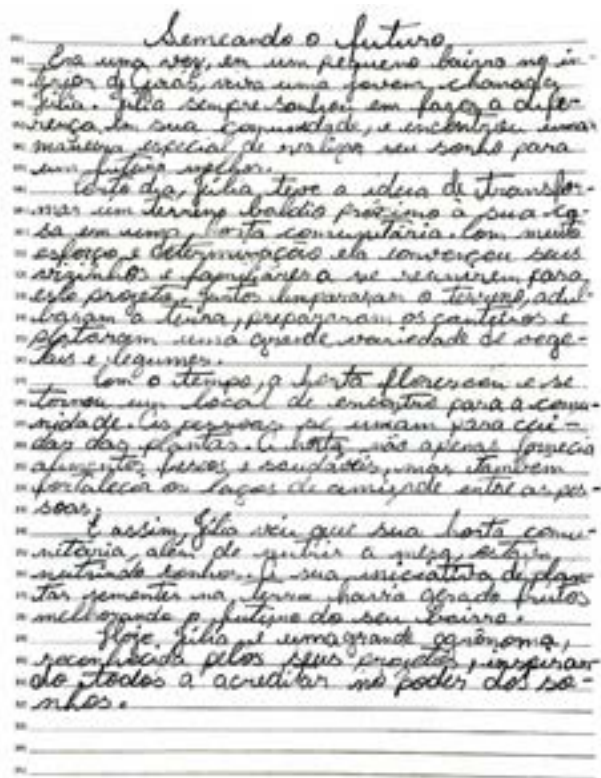 Semeando o futuro
Era uma vez, em um pequeno bairro no in-
terior de Goiás, vivia uma jovem chamada
Júlia. Júlia sempre sonhou em fazer a dife-
rença em sua comunidade, e encontrou uma
maneira especial de realizar seu sonho para
um futuro melhor.
Certo dia, Júlia teve a ideia de transfor-
mar um terreno baldio próximo à sua ca-
sa em uma horta comunitária. Com muito
esforço e determinação ela convenceu seus
vizinhos e familiares a se reunirem para
este projeto. Juntos limparam o terreno, adu-
baram a terra, prepararam os canteiros e
plantaram uma grande variedade de vege-
tais e legumes.
Com o tempo, a horta floresceu e se
tornou um local de encontro para a comu-
nidade. As pessoas se uniam para cui-
dar das plantas. A horta não apenas fornecia
alimentos frescos e saudáveis, mas também
fortalecia os laços de amizade entre as pes-
soas.
E assim, Júlia viu que sua horta comu-
nitária, além de nutrir a mesa, estava
nutrindo sonhos. A sua iniciativa de plan-
tar sementes na terra havia gerado frutos
melhorando o futuro do seu bairro.
Hoje, Júlia é uma grande agrônoma,
reconhecida pelos seus projetos, inspiran-
do todos a acreditar no poder dos so-
nhos.